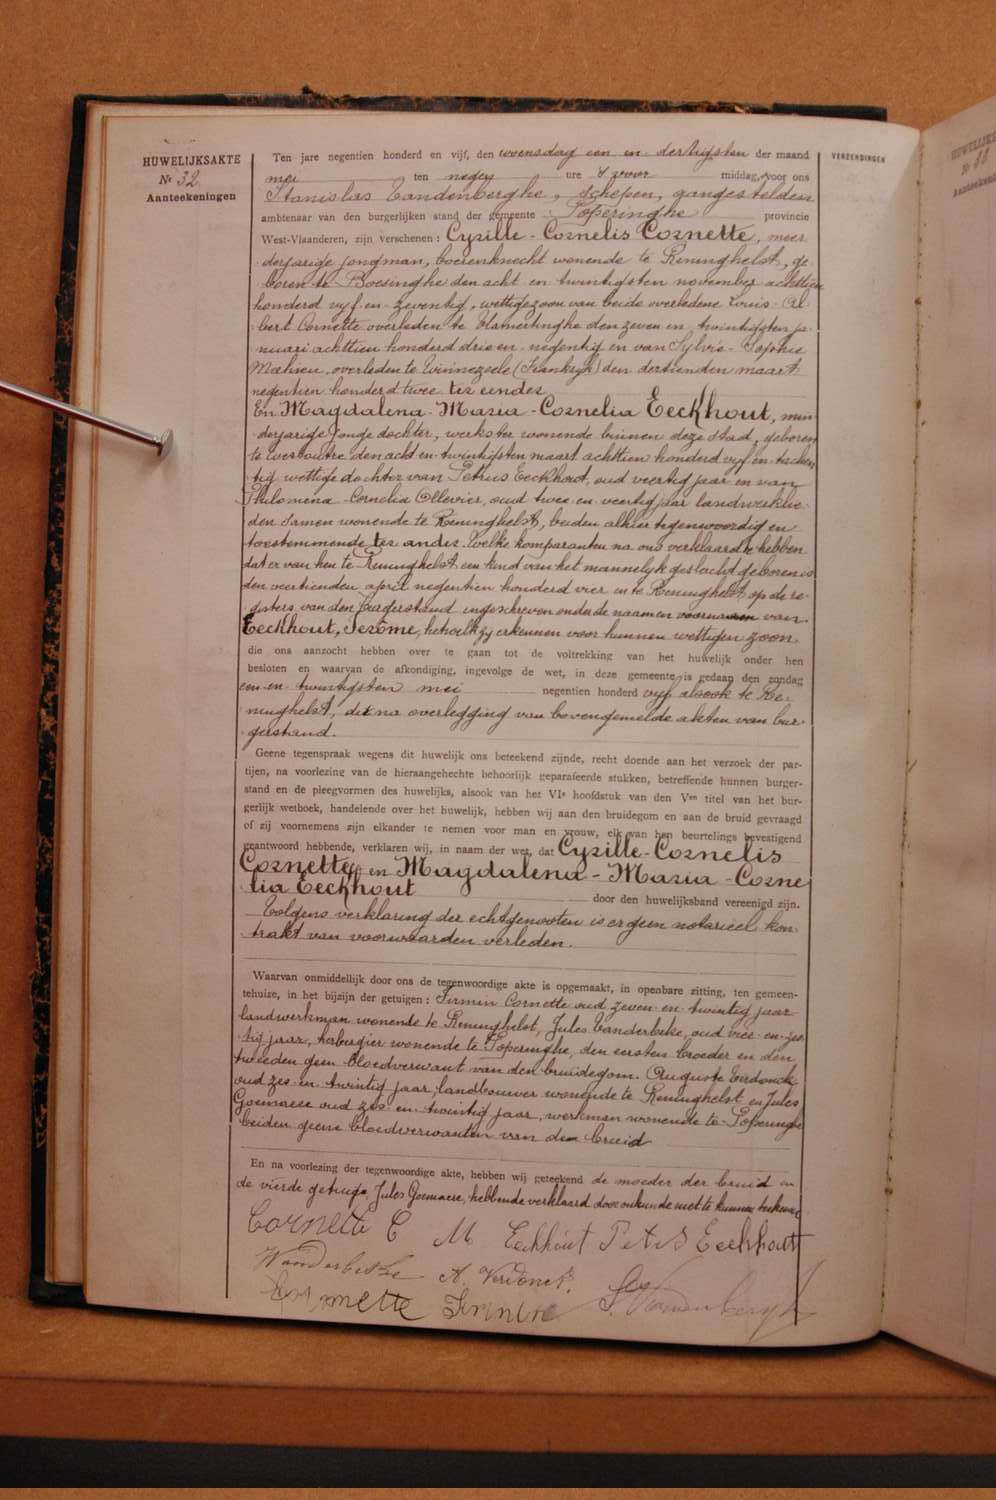 HUWELIJKSAKTE
Nr 32
Aanteekeningen
VERZENDINGEN
Ten jare negentien honderd en vijf, den woensdag een en dertigsten der maand
mei ten negen ure 's voor middag, voor ons
Stanislas Vandenberghe, schepen, gangestelden
ambtenaar van den burgerlijken stand der gemeente Poperinghe provincie
West-Vlaanderen, zijn verschenen: Cyrille-Cornelis Cornette, meer
derjarige jongman, boerenknecht wonende te Reninghelst, ge
boren te Boesinghe den acht en twintigsten november achttien
honderd vijf-en-zeventig, wettige zoon van beide overledene Louis-Al
bert Cornette overleden te Vlamertinghe den zeven en twintigsten ja
nuari achttien honderd drie en negentig en van Sylvie-Sophie
Mahieu, overleden te Winnezeele (Frankrijk) den dertienden maart
negentien honderd twee ter eender
En Magdalena-Maria-Cornelia Eeckhout, min
derjarige jonge dochter, werkster wonende binnen deze stad, geboren
te Westoutre den acht en twintigsten maart achttien honderd vijf en tachen
tig wettige dochter van Petrus Eeckhout, oud veertig jaar en van
Philomena-Cornelia Ollevier, oud twee en veertig jaar landwerklie
den samen wonende te Reninghelst, beiden alhier tegenwoordig en
toestemmende ter ander. Welke komparanten na ons verklaard te hebben
dat er van hen te Reninghelst een kind van het mannelijk geslacht geboren is
den veertienden april negentien honderd vier en te Reninghelst op de re-
gisters van den burgerstand ingeschreven onder de naamen voornamen van
Eeckhout, Jerôme, hetwelk zij erkennen voor hunnen wettigen zoon
die ons aanzocht hebben over te gaan tot de voltrekking van het huwelijk onder hen
besloten en waarvan de afkondiging, ingevolge de wet, in deze gemeente is gedaan den zondag
een-en-twintigsten mei negentien honderd vijf alsook te Re-
ninghelst, dit na overlegging van bovengemelde akten van bur-
gerstand.
Geene tegenspraak wegens dit huwelijk ons beteekend zijnde, recht doende aan het verzoek der par-
tijen, na voorlezing van de hieraangehechte behoorlijk geparafeerde stukken, betreffende hunnen burger-
stand en de pleegvormen des huwelijks, alsook van het VIe hoofdstuk van den Ven titel van het bur-
gerlijk wetboek, handelende over het huwelijk, hebben wij aan den bruidegom en aan de bruid gevraagd
of zij voornemens zijn elkander te nemen voor man en vrouw, elk van hen beurtelings bevestigend
geantwoord hebbende, verklaren wij, in naam der wet, dat Cyrille-Cornelis
Cornette en Magdalena-Maria-Corne
lia Eeckhout door den huwelijksband vereenigd zijn.
Volgens verklaring der echtgenooten is er geen notarieel kon-
trakt van voorwaarden verleden.
Waarvan onmiddellijk door ons de tegenwoordige akte is opgemaakt, in openbare zitting, ten gemeen-
tehuize, in het bijzijn der getuigen: Firmin Cornette oud zeven en twintig jaar
landwerkman wonende te Reninghelst, Jules Vanderbeke, oud vier-en-zes
tig jaar, herbergier wonende te Poperinghe, den eersten broeder en den
tweeden geen bloedverwant van den bruidegom. Auguste Verdonck
oud zes-en-twintig jaar, landbouwer wonende te Reninghelst en Jules
Goemaere oud zes-en-twintig jaar, werkman wonende te Poperinghe
beiden geene bloedverwanten van de bruid
En na voorlezing der tegenwoordige akte, hebben wij geteekend de moeder der bruid en
de vierde getuige, Jules Goemaere, hebbende verklaard door onkunde niet te kunnen teekenen
Cornette C M Eeckhout Peters Eeckhout
Wanderbeke A. Verdonck.
Cornette Firmin S. Vandenberghe